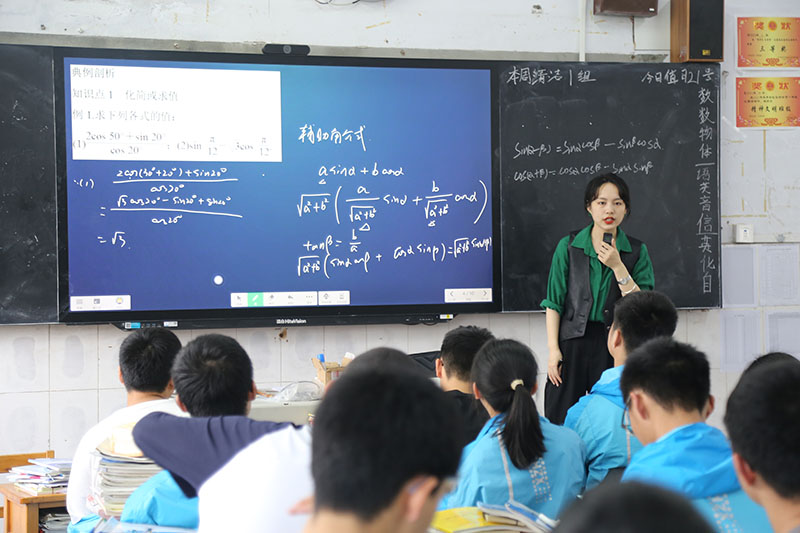 典例剖析
知识点1 化简或求值
例1.求下列各式的值:
(1) (2cos 50°+sin 20°)/cos 20° ; (2)sin π/12 - √3cos π/12
(1) (2cos(30°+20°)+sin20°)/cos20°
= (√3cos20°-sin20°+sin20°)/cos20°
= √3
辅助角公式
a sinα + b cosα
√a²+b² ( a/√a²+b² sinα + b/√a²+b² cosα )
tanβ = b/a
√a²+b² (sinα cosβ + cosα sinβ) = √a²+b² sin(α+β)
HiteVision
本周清洁1组
今日值日21号
sin(α-β) = sinαcosβ - sinβcosα
cos(α+β) = cosαcosβ - sinαsinβ
数数物体
英音信
化自
奖状
奖状